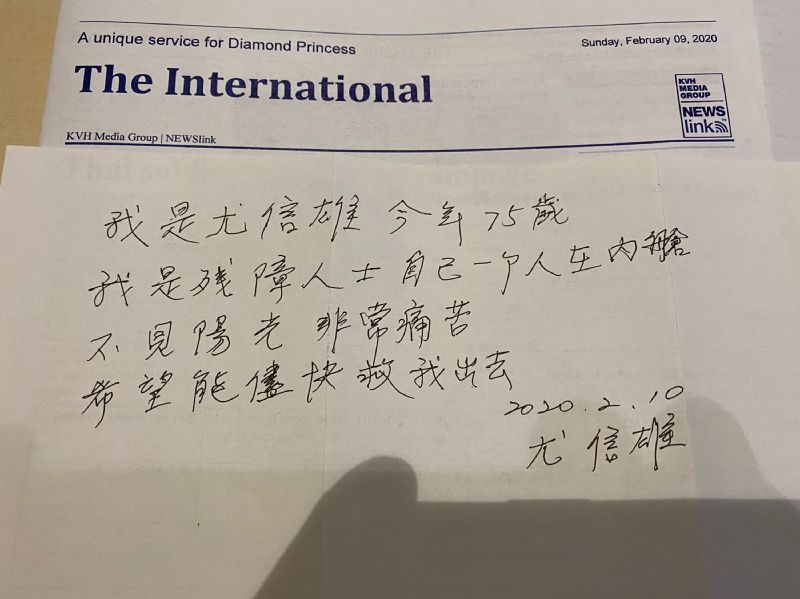 A unique service for Diamond Princess
Sunday, February 09, 2020
The International
KVH MEDIA GROUP
NEWS
link
KVH Media Group | NEWSlink
我是尤信雄 今年75歲
我是残障人士 自己一个人在內艙
不見陽光 非常痛苦
希望能儘快救我出去
2020.2.10
尤信雄